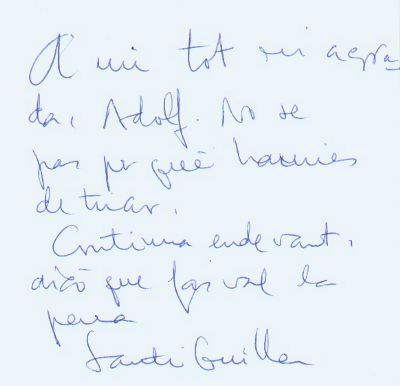 A mi tot m'agra
da, Adolf. No se
pas per què hauries
de tirar.
Continua endevant,
això que fas val la
pena
Santi Guillen